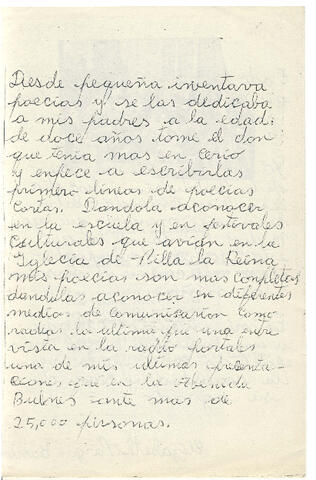 Desde pequeña inventava
poecias y se las dedicaba
a mis padres a la edad
de doce años tome el don
que tenia mas en cerio
y enpece a escribirlas
primero lineas de poecias
cortas. Dandola aconocer
en la escuela y en festevales
culturales que avian en la
Iglecia de Villa la Reina
mis poecias son mas conpletas
dandolas aconocer en diferentes
medios de comunicacion como
radios la ultima fue una entre
vista en la radio portales
una de mis ultimas presenta
ciones fue en la Abenida
Bulnes ante mas de
25,000 personas.